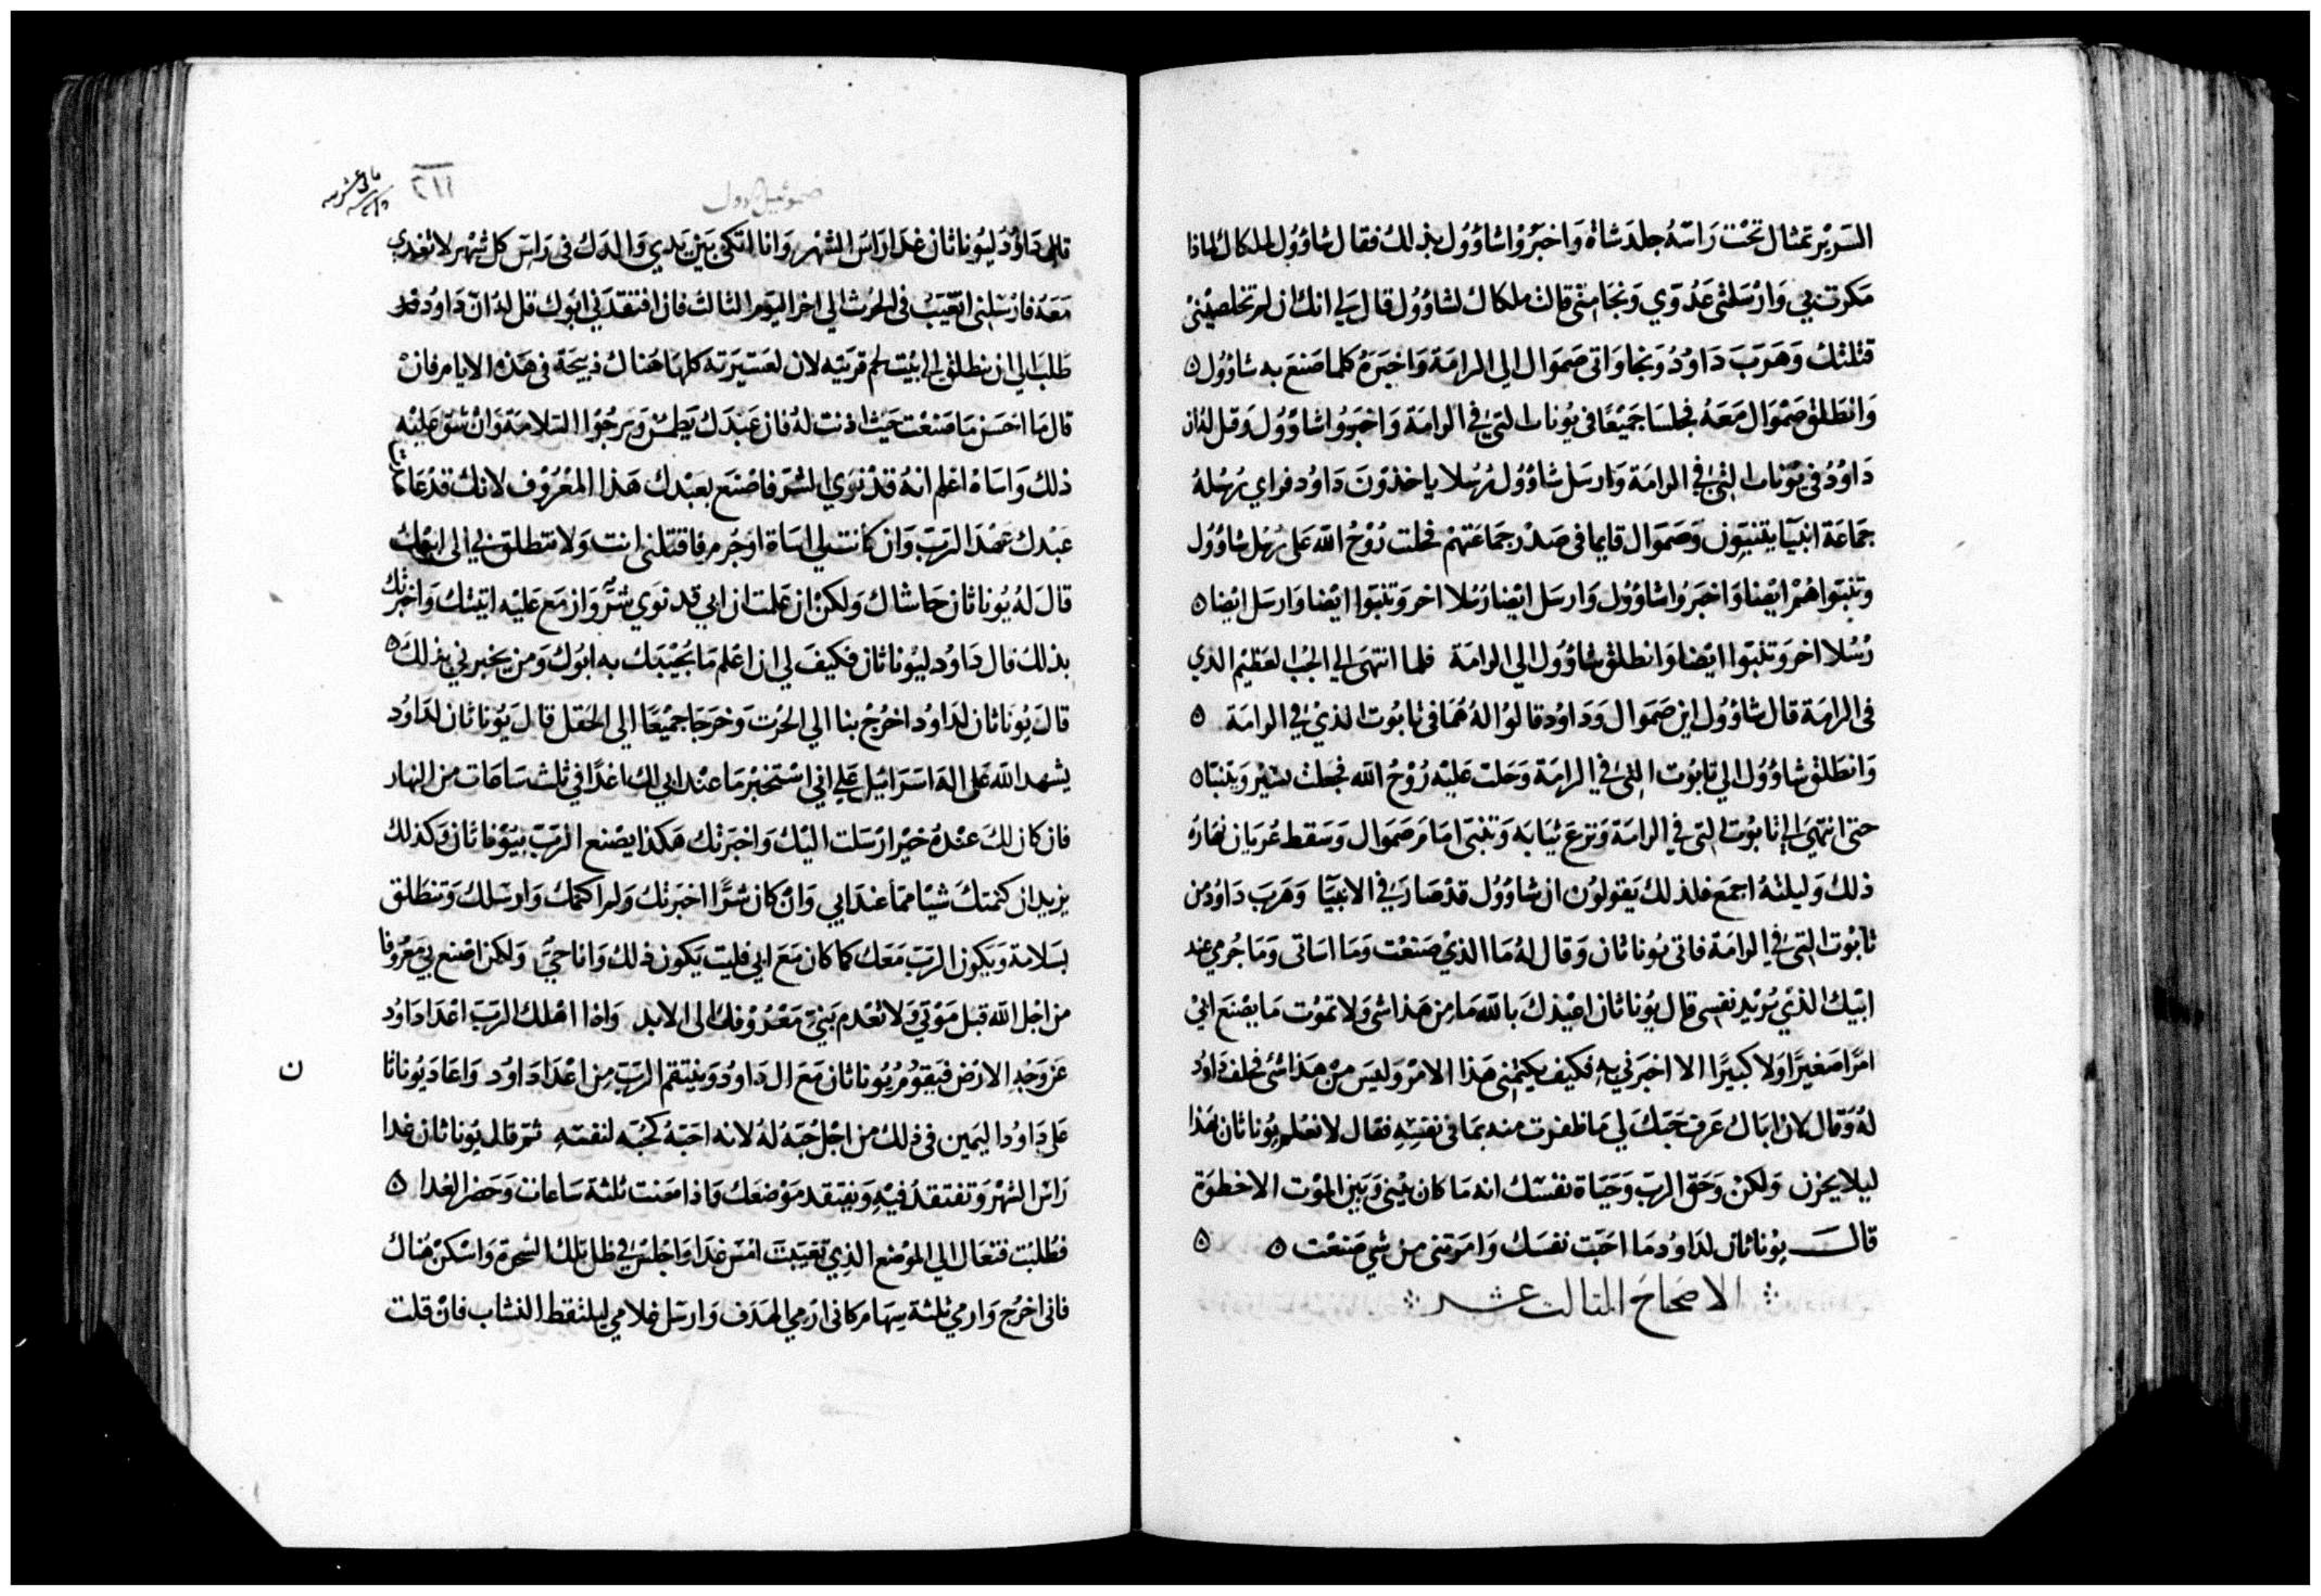 السَرير تمثال تحْت رَاسَهُ جلدَ شاة وَاخبَرُوْا شاوُول بذلكَ فقال شاوُول لملكال لماذا
مَكرت بي وَارْسَلتى عَدُوّي وَنجَا منى قالت ملكال لشاوُول قال لي انك ان لم تخلصيْنىْ
قتلتك وَهَربَ دَاوُدُ وَنجا وَاتى صَموَال الي الرامَة وَاخبَرَهُ كلما صَنعَ به شاوُول ٥
وَانطَلق صَمْوَال مَعَهُ فجلسَا جَميْعًا فى يُونات التى في الرامَة وَاخبَرُوا شاوُول وَقيل لهُ ان
دَاوُدُ في يُونات التىْ في الرامَة وَارسَل شاوُول رُسُلا ياخذوُنَ دَاوُد فراي رُسُلهُ
جَمَاعَة انبيَا يتنبّون وَصَموَال قايما فى صَدْر جَمَاعَتهمْ فحلت رُوْحُ الله عَلى رُسُل شاوُول
وتنبوا هُمْ ايْضا وَاخبَرُوا شاوُول وَارسَل ايضا رُسُلا اخر وَتنبَوا ايْضا وَارسَل ايضا ٥
رُسُلا اخر وَتنبَوا ايْضا وَانطلق شاوُول الي الرامَة فلما انتهَى الي الجُب العَظيْم الذي
فى الرامَة قال شاوُول اين صَموَال وَدَاوُد قالوُا لهُ هُمَا فى تابوُت الذيْ في الرامَة ٥
وَانطَلق شاوُول الي تابوُت التى في الرامَة وَحَلت عَليْه رُوْحُ الله فجعلَ يسَيْر وَيتنبّا ٥
حتى انتهَى الي تابوُت التى في الرامَة وَنزعَ ثيَابَه وَتنبَى امَامَ صَموَال وَسَقط عُريَان نهَارَهُ
ذلك وَليلتهُ اجمَع فلذلك يَقولوُن ان شاوُول قدْ صَارَ في الانبيَا وَهَربَ دَاوُد من
تابوُت التىْ في الرامَة فاتى يُوناثان وَقال لهُ مَا الذيْ صَنعْت وَمَا اسَاتى وَمَا جُرمي عند
ابيْك الذيْ يُريْد نفسى قال يُوناثان اعيْذكَ بالله مَا من هَذا شى وَلا تموُت مَا يصْنعَ ابيْ
امرًا صَغيرًا وَلا كبيرًا الا اخبَرني به فكيف يَكتمنى هَذا الامْر وَليسَ منْ هَذا شى فحلف دَاوُد
لهُ وَقال لان ابَاك عَرفَ حَبكَ لي مَا ظفرت منه بمَا فى نفسَه فقال لا نعْلم يُوناثان هَذا
ليلا يحزن وَلكنْ وَحَق الربّ وَحَيَاة نفسَك انه مَا كان بَينى وَبَين الموْت الا خطوَة
قال يوُناثان لدَاوُد مَا احَبت نفسَك وَامَرتنى من شي صَنعْت ٥ ٥
الاصحَاح الثالث عشر
صموئيل الاول
قال دَاوُد ليُوناثان غدَا رَاسَ الشهْر وَانا اتكى بَيْن يَدي وَالدك فى رَاسَ كل شهْر لاتغدي
مَعَهُ فارسَلنى اتغيَبُ فى الحَرث الي اخر اليَوم الثالث فان افتقدَني ابُوك قل لهُ ان دَاوُد قد
طلبَ الي ان ينطلق الي بيْت لحم قريَتِه لان لعَشيرَتهَ كلهَا هُناك ذبيحَة فى هَذه الايام فانْ
قال مَا احَسَن مَا صَنعْت حَيْث اذنت لهُ فان عَبدَك يَطمئن وَيَرجُوا السَلامَة وَانْ شق عَليْه
ذلك وَاسَاهُ اعْلم انهُ قدْ نوَي الشَر فاصْنع بعَبْدك هَذا المعْرُوْف لانك قدْ عَاهَدت
عَبْدك عَهْدَ الربّ وَان كانت لي اسَاة اوْ جُرم فاقتلنى انت وَلا تنطلق بي الى ابيْك
قال لهُ يُوناثان حَاشاك وَلكنْ ان عَلمت ان ابي قد نوَي شَرّ وَازمَع عَليْه اتيتك وَاخبَرتك
بذلك قال دَاوُد ليُوناثان فكيفَ لي ان اعْلم مَا يُجيْبَك به ابوُك وَمن يخبرني بذلكَ ٥
قالَ يوُناثان لدَاوُد اخرُجْ بنا الي الحَرْث وَخرَجَا جَميْعًا الي الحَقل قالَ يوُناثان لدَاوُد
يشهد الله عَلى الهَ اسَرَايل عَلي اني اسْتخبْر مَا عنْد ابي لك غدًا في ثلث سَاعَات من النهار
فان كان لكَ عنْدهُ خيْر ارْسَلت اليْك وَاخبَرتك هَكذا يصْنع الربّ بيُوناثان وَكذلك
يزيد ان كتمتكَ شيْا ممَا عندَ ابي وَانْ كان شَرًّا اخبَرتك وَلم اكتمك وَارسَلك وَتنطَلق
بسَلامَة وَيَكون الربّ مَعَك كما كان مَعَ ابي فليت يَكون ذلك وَانا حَيّ وَلكن اصْنع بي مَعْرُوفا
من اجْل الله قبل مَوْتي وَلا تعْدم بَنيّ مَعْرُوْفك الى الابد وَاذا اهْلك الربّ اعْدَا دَاوُد
عَن وَجْه الارْض فيَقوُمُ يُوناثان مَعَ ال دَاوُد وَينتقم الربّ من اعْدَا دَاوُد وَاعَادَ يُوناثا
ن
عَلي دَاوُد اليَمين فى ذلك من اجْل حُبَهُ لهُ لانه احَبَهُ كحُبَه لنفسَه ثمّ قال يُوناثان غدا
رَاسَ الشهْر وَتفتقدُ فيْه وَيفتقد مَوْضعَك فاذا مَضت ثلثة سَاعَات وَحَضر الغدا ٥
فطُلبْت فتعَال الي الموْضع الذيْ تغيَبتَ امْسَ غدَا وَاجْلسْ في ظل تلك الشجرَة وَاسْكنْ هُناك
فانى اخرُج وَارمي ثلثة سِهَام كانى ارمي الهَدَف وَارسَل غلامي ليلتقط النشاب فانْ قلت